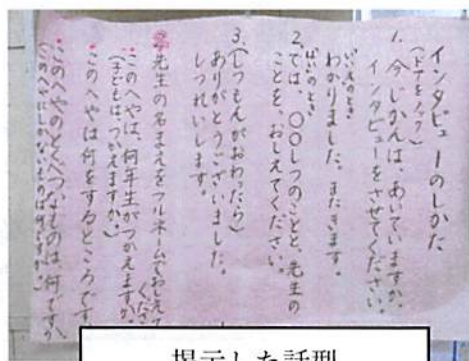 インタビューのしかた
(ドアをノック)
1. 今、じかんは、あいていますか。
インタビューをさせてください。
いいえのとき
わかりました。またきます。
はいのとき
2. では、〇〇しつのことと、先生の
ことを、おしえてください。
3. (しつもんがおわったら)
ありがとうございました。
しつれいします。
先生の名まえをフルネームでおしえて
くださ
このへやは、何年生がつかえますか。
(子どもはつかえますか。)
このへやは何をするところです
このへやのとくべつなものは、何ですか
掲示した話型